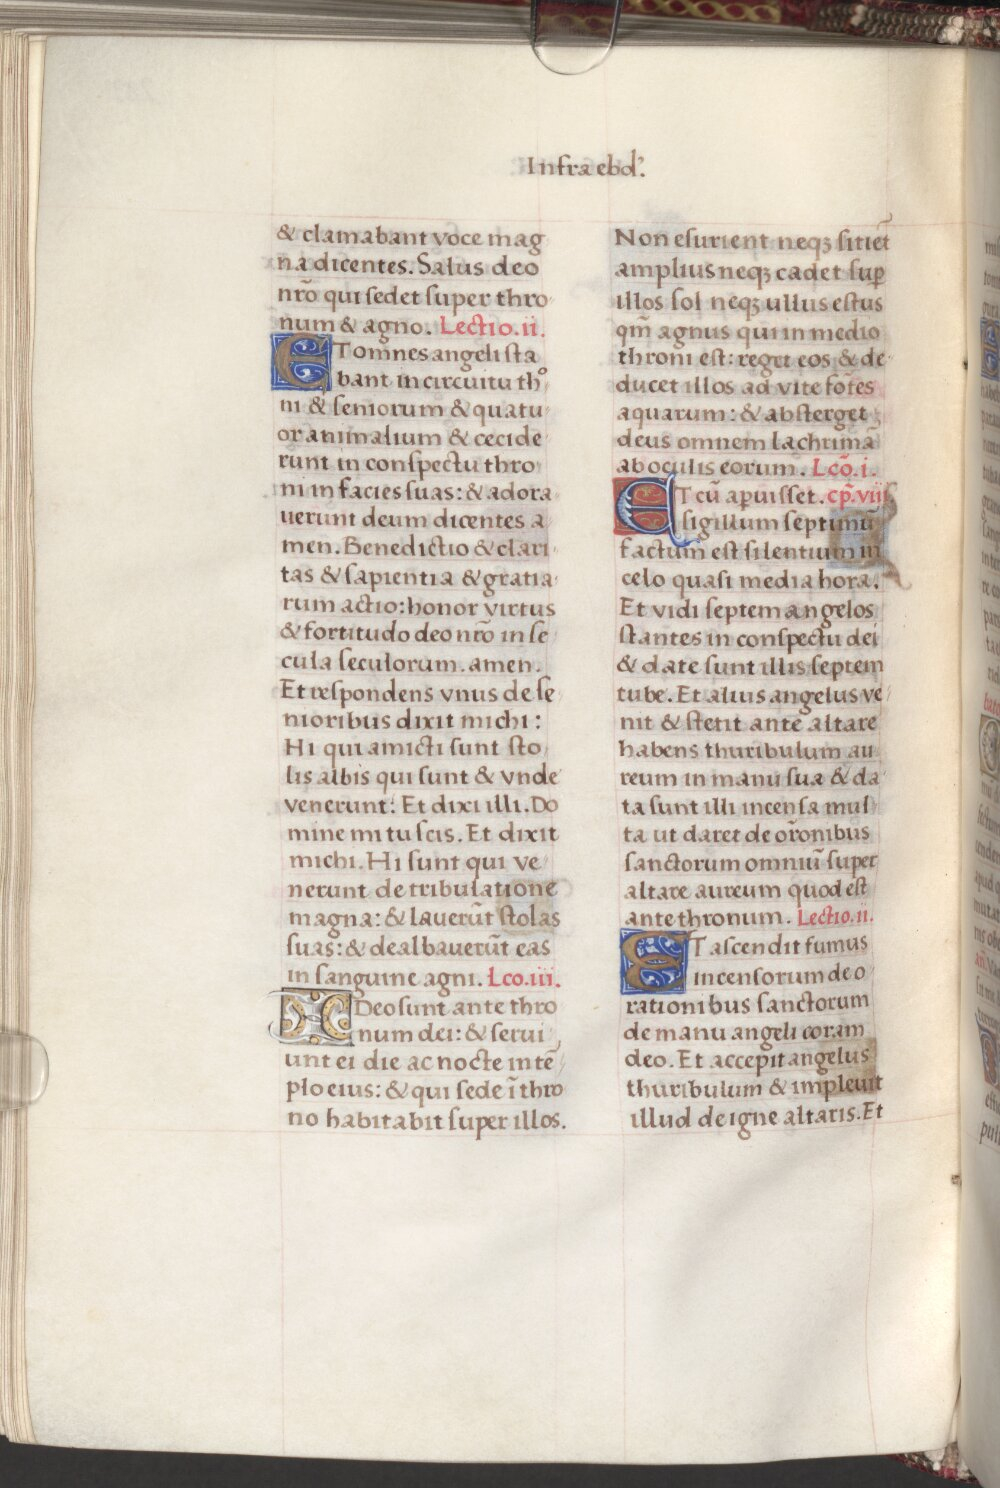 Infra ebd’.
& clamabant voce mag
na dicentes. Salus deo
nr̄o qui sedet super thro
num & agno. Lectio. ii.
ET omnes angeli sta
bant in circuitu thº
ni & seniorum & quatu
or animalium & cecide
runt in conspectu thro
ni in facies suas: & adora
uerunt deum dicentes a
men. Benedictio & clari
tas & sapientia & gratia
rum actio: honor virtus
& fortitudo deo nr̄o in se
cula seculorum. amen.
Et respondens vnus de se
nioribus dixit michi:
Hi qui amicti sunt sto
lis albis qui sunt & vnde
venerunt: Et dixi illi. Do
mine mi tu scis. Et dixit
michi. Hi sunt qui ve
nerunt de tribulatione
magna: & lauerūt stolas
suas: & dealbauerūt eas
in sanguine agni. Lco. iii.
IDeo sunt ante thro
num dei: & serui
unt ei die ac nocte in tē
plo eius: & qui sede ī thro
no habitabit super illos.
Non esurient neqꝫ sitiēt
amplius neqꝫ cadet suꝑ
illos sol neqꝫ ullus estus
qm̄ agnus qui in medio
throni est: reget eos & de
ducet illos ad vite fōtes
aquarum: & absterget
deus omnem lachrimā
ab oculis eorum. Lcō. i.
ET cū apuisset. cp̄. viii.
sigillum septimū
factum est silentium in
celo quasi media hora.
Et vidi septem angelos
stantes in conspectu dei
& date sunt illis septem
tube. Et alius angelus ve
nit & stetit ante altare
habens thuribulum au
reum in manu sua & da
ta sunt illi incensa mul
ta ut daret de or̄onibus
sanctorum omniū super
altare aureum quod est
ante thronum. Lectio. ii.
ET ascendit fumus
incensorum de o
rationibus sanctorum
de manu angeli coram
deo. Et accepit angelus
thuribulum & impleuit
illud de igne altaris. Et